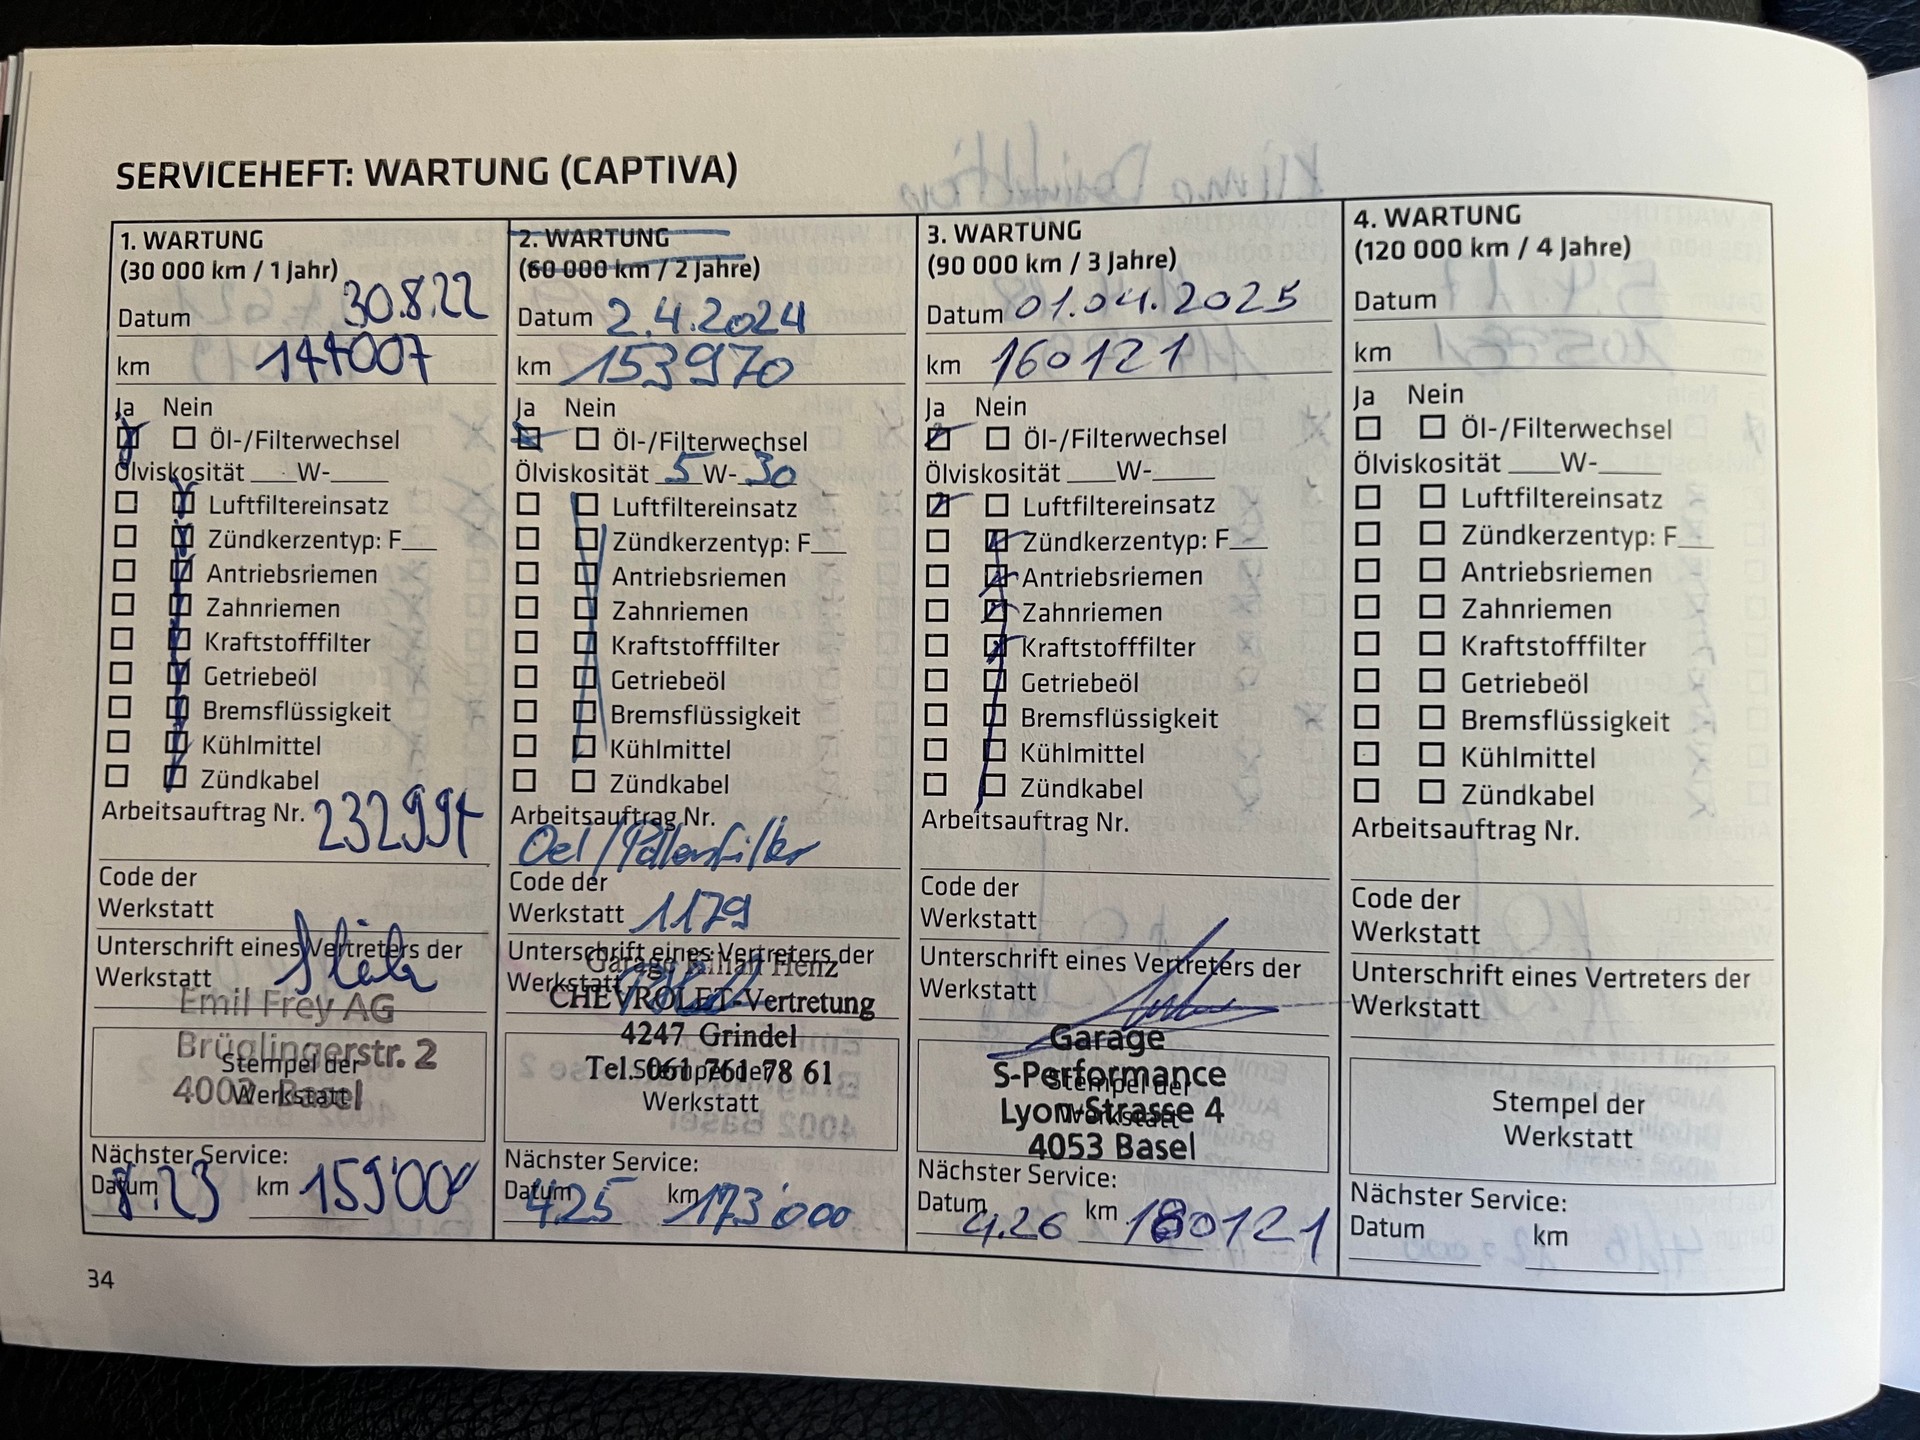 SERVICEHEFT: WARTUNG (CAPTIVA)
1. WARTUNG
(30 000 km / 1 Jahr)
Datum 30.8.22
km 144007
Ja Nein
Öl-/Filterwechsel
Ölviskosität ___W-____
Luftfiltereinsatz
Zündkerzentyp: F__
Antriebsriemen
Zahnriemen
Kraftstofffilter
Getriebeöl
Bremsflüssigkeit
Kühlmittel
Zündkabel
Arbeitsauftrag Nr.
Code der
Werkstatt
Unterschrift eines Vertreters der
Werkstatt
Emil Frey AG
Brüglingerstr. 2
4002 Basel
Stempel der
Werkstatt
Nächster Service:
Datum 8.23 km 159'000
2. WARTUNG
(60 000 km / 2 Jahre)
Datum 2.4.2024
km 153970
Ja Nein
Öl-/Filterwechsel
Ölviskosität 5 W- 30
Luftfiltereinsatz
Zündkerzentyp: F__
Antriebsriemen
Zahnriemen
Kraftstofffilter
Getriebeöl
Bremsflüssigkeit
Kühlmittel
Zündkabel
Arbeitsauftrag Nr.
Oel/Pollenfilter
Code der
Werkstatt 1179
Unterschrift eines Vertreters der
Werkstatt
Garage Kilian Henz
CHEVROLET-Vertretung
4247 Grindel
Tel. 061 761 78 61
Stempel der
Werkstatt
Nächster Service:
Datum 4.25 km 173'000
3. WARTUNG
(90 000 km / 3 Jahre)
Datum 01.04.2025
km 160121
Ja Nein
Öl-/Filterwechsel
Ölviskosität ___W-____
Luftfiltereinsatz
Zündkerzentyp: F__
Antriebsriemen
Zahnriemen
Kraftstofffilter
Getriebeöl
Bremsflüssigkeit
Kühlmittel
Zündkabel
Arbeitsauftrag Nr.
Code der
Werkstatt
Unterschrift eines Vertreters der
Werkstatt
Garage
S-Performance
Lyon-Strasse 4
4053 Basel
Stempel der
Werkstatt
Nächster Service:
Datum 4.26 km 180121
4. WARTUNG
(120 000 km / 4 Jahre)
Datum
km
Ja Nein
Öl-/Filterwechsel
Ölviskosität ___W-____
Luftfiltereinsatz
Zündkerzentyp: F__
Antriebsriemen
Zahnriemen
Kraftstofffilter
Getriebeöl
Bremsflüssigkeit
Kühlmittel
Zündkabel
Arbeitsauftrag Nr.
Code der
Werkstatt
Unterschrift eines Vertreters der
Werkstatt
Stempel der
Werkstatt
Nächster Service:
Datum km
34